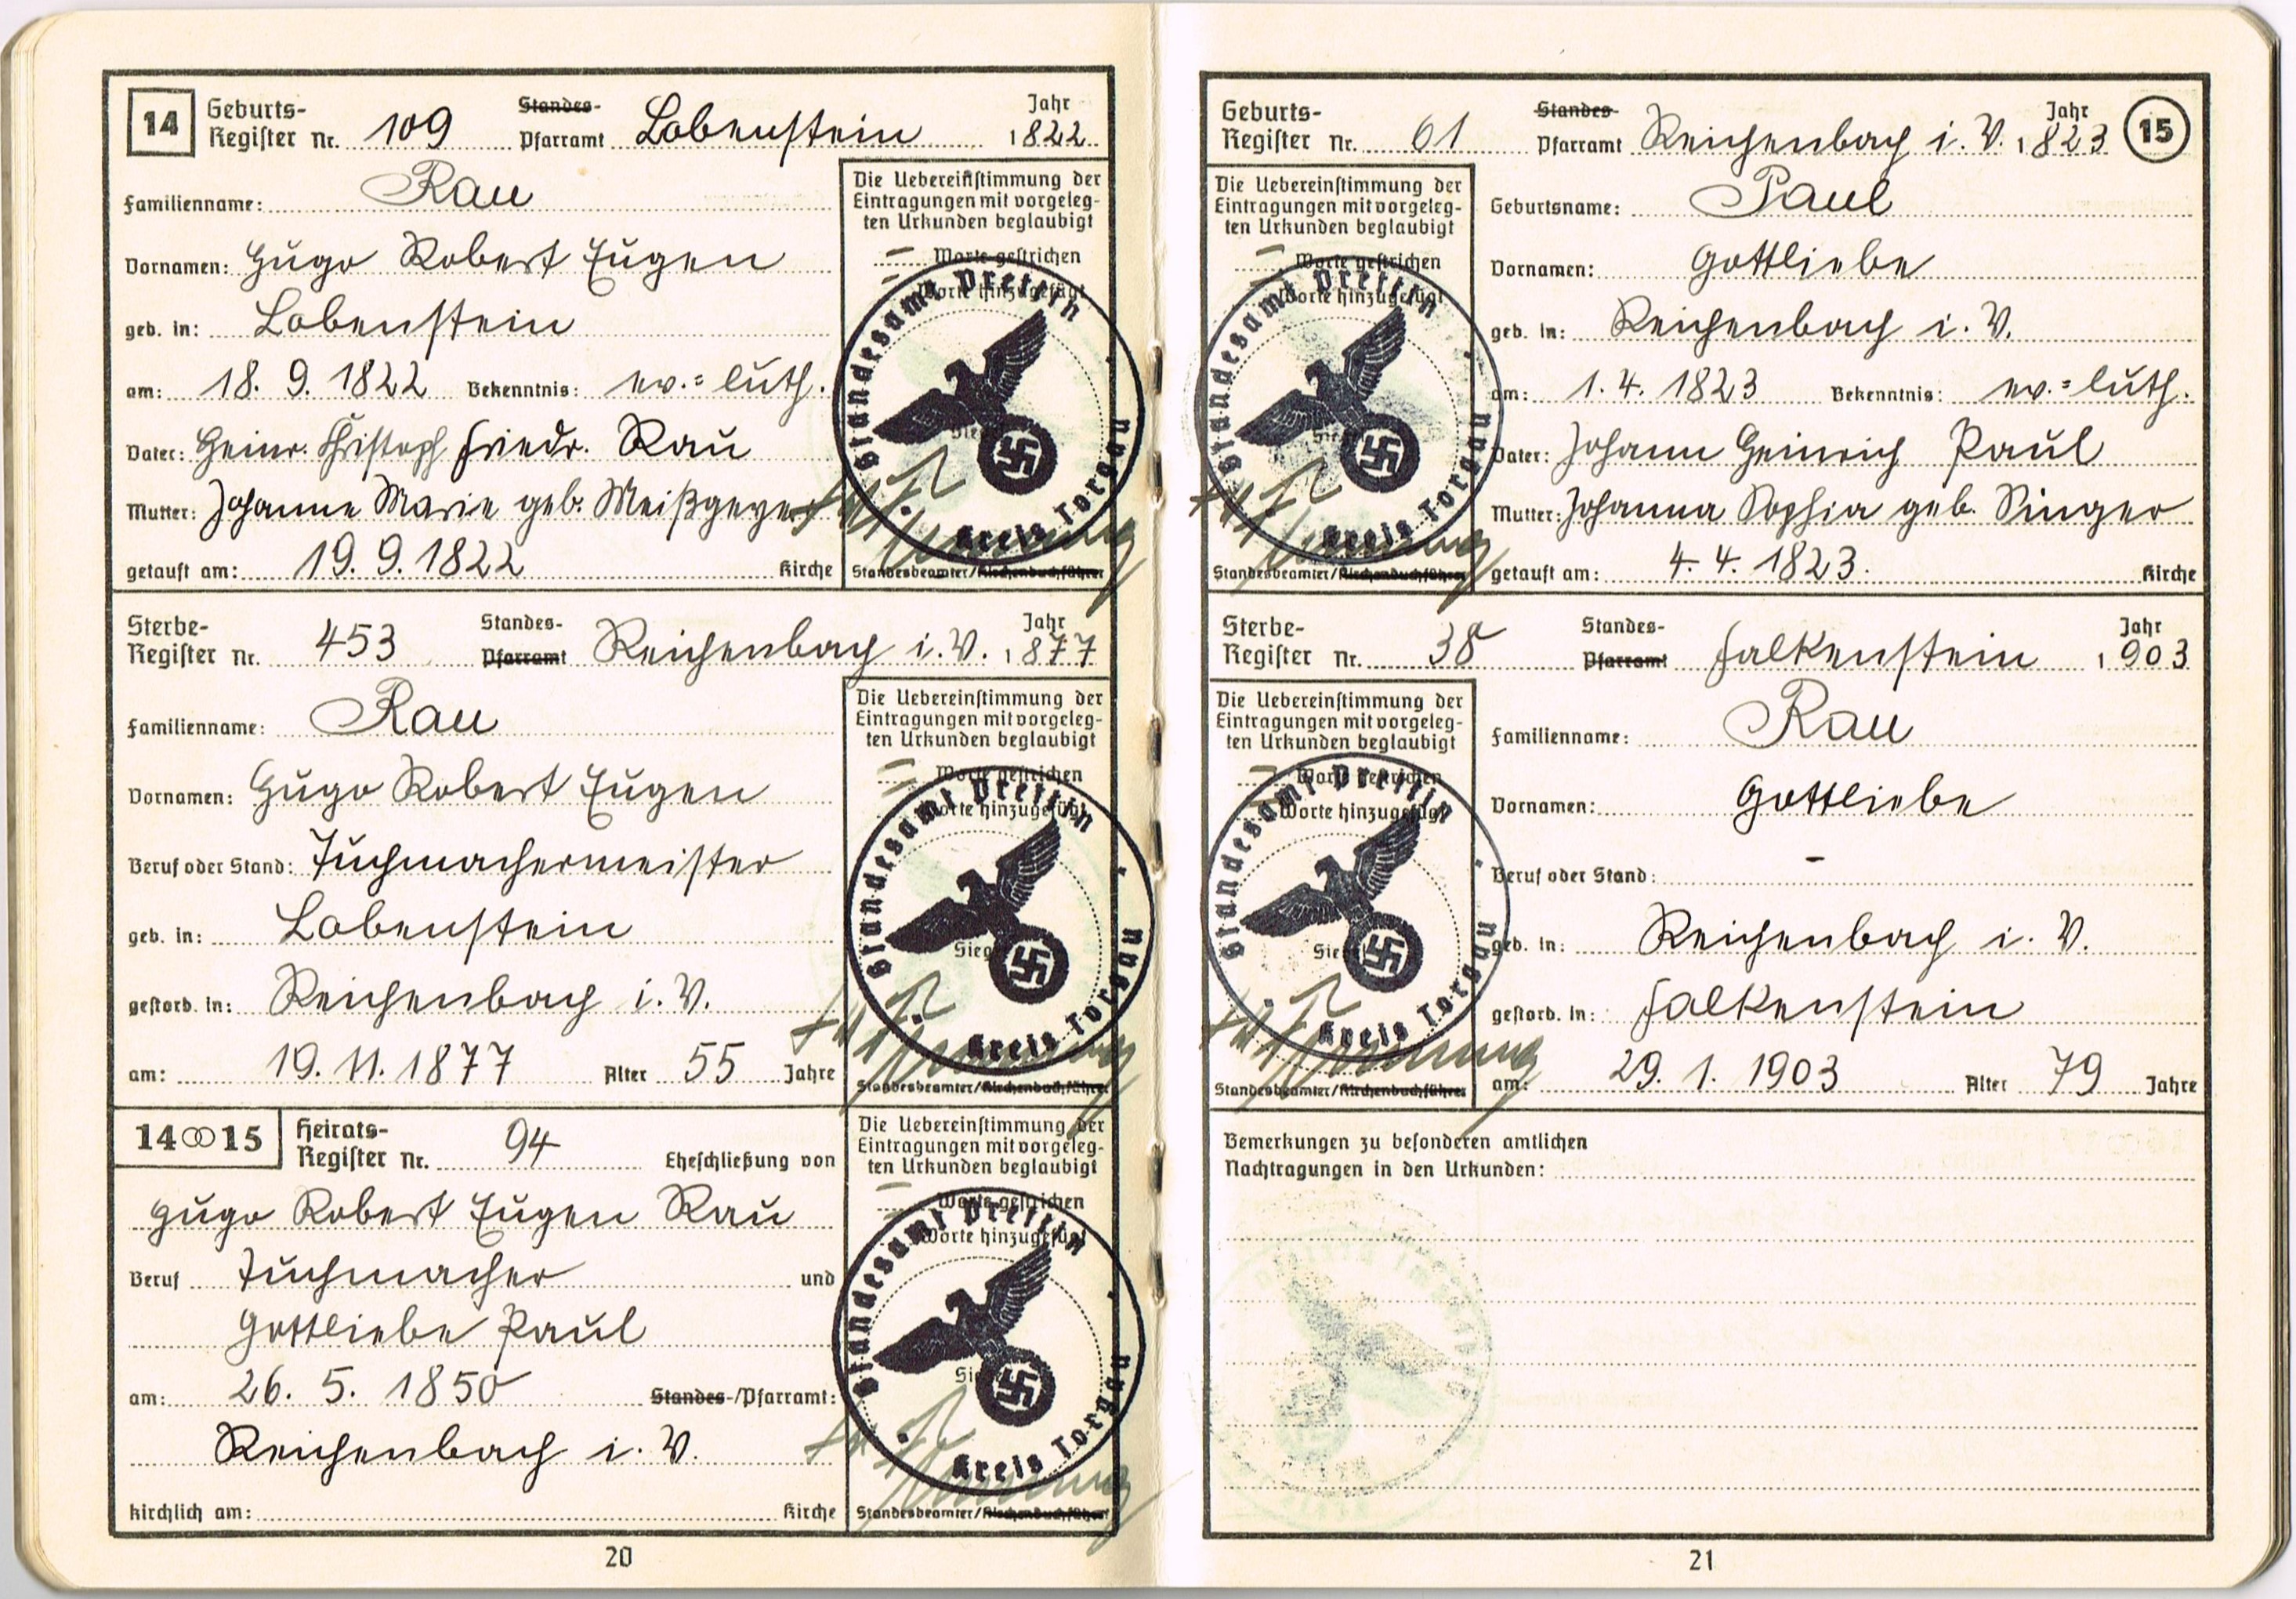 14 Geburts- Register Nr. 109 Standes- Pfarramt Lobenstein Jahr 1822
Familienname: Rau
Vornamen: Hugo Robert Eugen
geb. in: Lobenstein
am: 18. 9. 1822 Bekenntnis: ev.=luth.
Vater: Heinr. Christoph Friedr. Rau
Mutter: Johanne Marie geb. Meißgeyer
getauft am: 19. 9. 1822 Kirche
Die Uebereinstimmung der
Eintragungen mit vorgeleg-
ten Urkunden beglaubigt
Worte gestrichen
Worte hinzugefügt
Siegel
Standesamt Prettin
Kreis Torgau
Standesbeamter/Kirchenbuchführer
Sterbe- Register Nr. 453 Standes- Pfarramt Reichenbach i. V. Jahr 1877
Familienname: Rau
Vornamen: Hugo Robert Eugen
Beruf oder Stand: Tuchmachermeister
geb. in: Lobenstein
gestorb. in: Reichenbach i. V.
am: 19. 11. 1877 Alter 55 Jahre
Die Uebereinstimmung der
Eintragungen mit vorgeleg-
ten Urkunden beglaubigt
Worte gestrichen
Worte hinzugefügt
Siegel
Standesamt Prettin
Kreis Torgau
Standesbeamter/Kirchenbuchführer
14 ∞ 15 Heirats- Register Nr. 94 Eheschließung von
Hugo Robert Eugen Rau
Beruf Tuchmacher und
Gottliebe Paul
am: 26. 5. 1850 Standes-/Pfarramt:
Reichenbach i. V.
kirchlich am: Kirche
Die Uebereinstimmung der
Eintragungen mit vorgeleg-
ten Urkunden beglaubigt
Worte gestrichen
Worte hinzugefügt
Siegel
Standesamt Prettin
Kreis Torgau
Standesbeamter/Kirchenbuchführer
20
Geburts- Register Nr. 61 Standes- Pfarramt Reichenbach i. V. Jahr 1823 15
Die Uebereinstimmung der
Eintragungen mit vorgeleg-
ten Urkunden beglaubigt
Worte gestrichen
Worte hinzugefügt
Siegel
Standesamt Prettin
Kreis Torgau
Standesbeamter/Kirchenbuchführer
Geburtsname: Paul
Vornamen: Gottliebe
geb. in: Reichenbach i. V.
am: 1. 4. 1823 Bekenntnis: ev.=luth.
Vater: Johann Heinrich Paul
Mutter: Johanna Sophia geb. Singer
getauft am: 4. 4. 1823. Kirche
Sterbe- Register Nr. 38 Standes- Pfarramt Falkenstein Jahr 1903
Die Uebereinstimmung der
Eintragungen mit vorgeleg-
ten Urkunden beglaubigt
Worte gestrichen
Worte hinzugefügt
Siegel
Standesamt Prettin
Kreis Torgau
Standesbeamter/Kirchenbuchführer
Familienname: Rau
Vornamen: Gottliebe
Beruf oder Stand: -
geb. in: Reichenbach i. V.
gestorb. in: Falkenstein
am: 29. 1. 1903 Alter 79 Jahre
Bemerkungen zu besonderen amtlichen
Nachtragungen in den Urkunden:
21